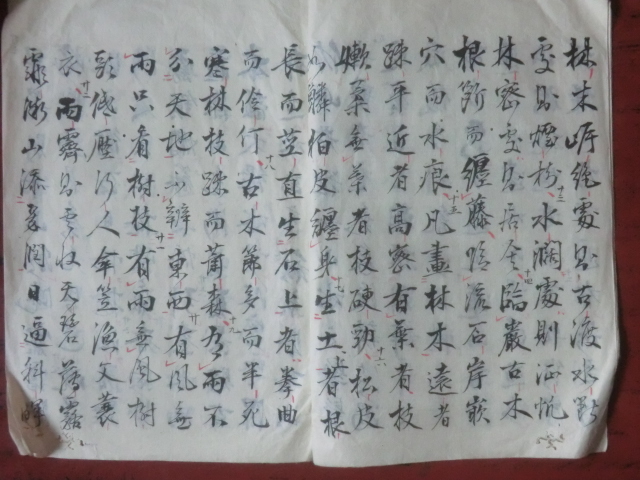 林木岸絕處則古渡水斷
處則煙樹十三水濶處則征帆
林密處則居舍十四臨巖古木
根斷而纏藤臨流石岸嵌
穴而水痕十五凡畫林木遠者
踈平近者高密有葉者枝
嫩葉無葉者枝硬勁十六松皮
如鱗栢皮纏身十七生土上者根
長而莖直生石上者拳曲
而伶仃十八古木節多而半死
寒林枝踈而蕭森十九有雨不
分天地不辨東西廿有風無
雨只看樹枝廿一有雨無風樹
頭低壓行人傘笠漁父蓑
衣廿二雨霽則雲收天碧薄霧
霏微山添翠潤日逼斜暉